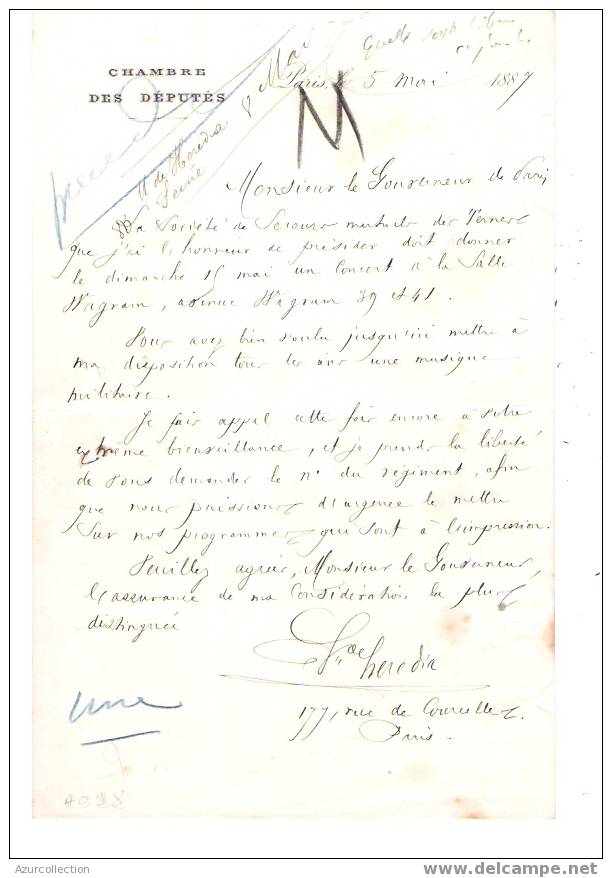 CHAMBRE
DES DÉPUTÉS
8 Mai
Quelle
Paris, le 5 mai 1887
M
M de Heredia
Seine
Monsieur le Gouverneur de Paris,
La Société de Secours mutuels des Ternes
que j'ai l'honneur de présider doit donner
le dimanche 15 mai un Concert à la Salle
Wagram, avenue Wagram 39 & 41.
Vous avez bien voulu jusqu'ici mettre à
ma disposition tous les ans une musique
militaire.
Je fais appel cette fois encore à votre
extrême bienveillance, et je prends la liberté
de vous demander le n° du régiment, afin
que nous puissions d'urgence le mettre
sur nos programmes qui sont à l'impression.
Veuillez agréer, Monsieur le Gouverneur,
l'assurance de ma considération la plus
distinguée
de heredia
177, rue de Courcelles.
Paris.
une
Azurcollection
www.delcampe.net